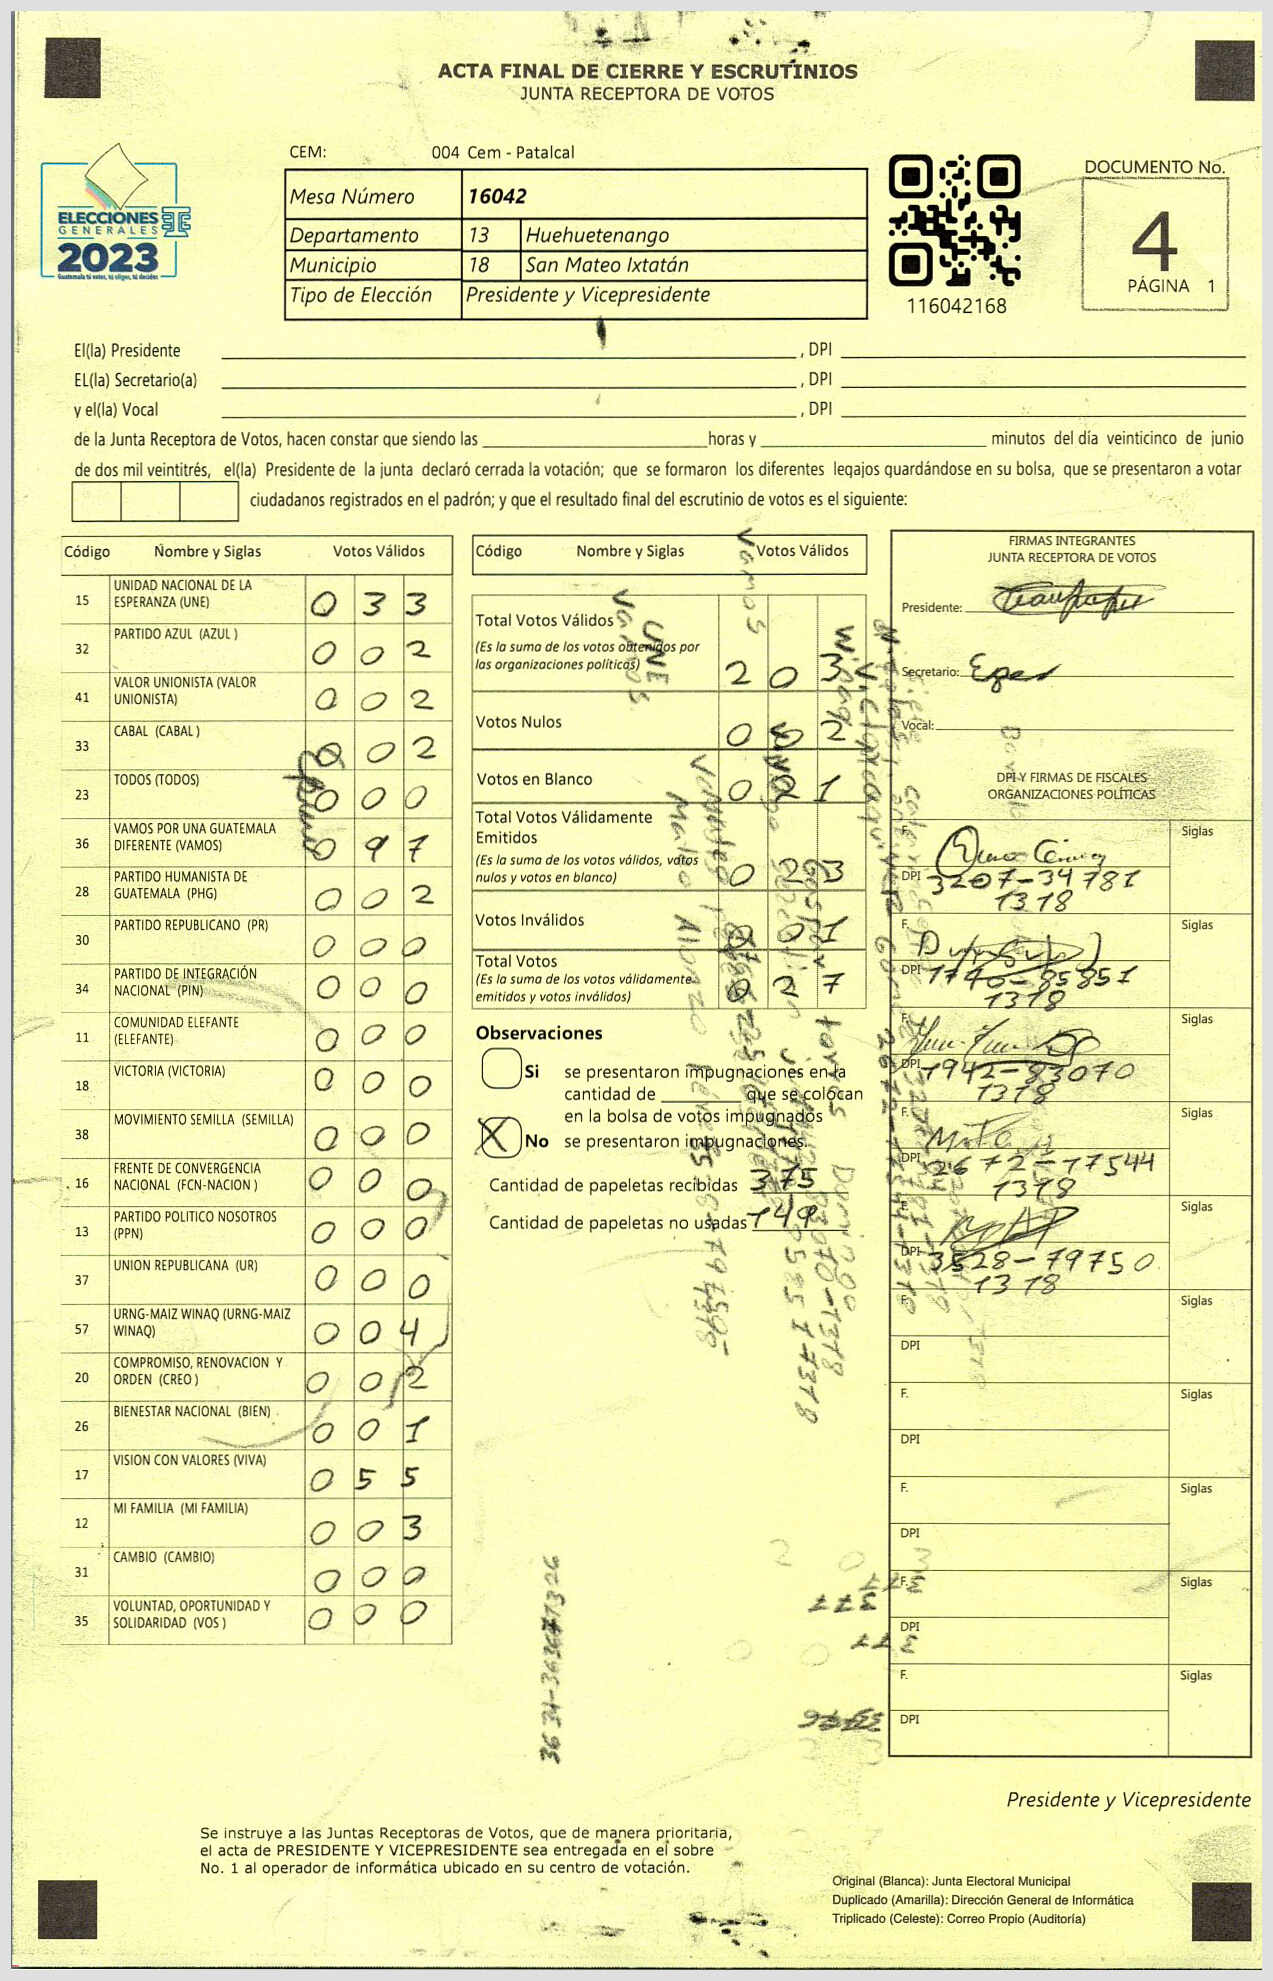 ACTA FINAL DE CIERRE Y ESCRUTINIOS
JUNTA RECEPTORA DE VOTOS
CEM: 004 Cem - Patalcal
Mesa Número 16042
Departamento 13 Huehuetenango
Municipio 18 San Mateo Ixtatán
Tipo de Elección Presidente y Vicepresidente
ELECCIONES
GENERALES
2023
Guatemala tú votas, tú eliges, tú decides
116042168
DOCUMENTO No.
4
PÁGINA 1
El(la) Presidente , DPI
EL(la) Secretario(a) , DPI
y el(la) Vocal , DPI
de la Junta Receptora de Votos, hacen constar que siendo las horas y minutos del día veinticinco de junio
de dos mil veintitrés, el(la) Presidente de la junta declaró cerrada la votación; que se formaron los diferentes legajos guardándose en su bolsa, que se presentaron a votar
ciudadanos registrados en el padrón; y que el resultado final del escrutinio de votos es el siguiente:
Código Nombre y Siglas Votos Válidos
15 UNIDAD NACIONAL DE LA ESPERANZA (UNE) 0 3 3
32 PARTIDO AZUL (AZUL ) 0 0 2
41 VALOR UNIONISTA (VALOR UNIONISTA) 0 0 2
33 CABAL (CABAL ) 0 0 2
23 TODOS (TODOS) 0 0 0
36 VAMOS POR UNA GUATEMALA DIFERENTE (VAMOS) 0 9 7
28 PARTIDO HUMANISTA DE GUATEMALA (PHG) 0 0 2
30 PARTIDO REPUBLICANO (PR) 0 0 0
34 PARTIDO DE INTEGRACIÓN NACIONAL (PIN) 0 0 0
11 COMUNIDAD ELEFANTE (ELEFANTE) 0 0 0
18 VICTORIA (VICTORIA) 0 0 0
38 MOVIMIENTO SEMILLA (SEMILLA) 0 0 0
16 FRENTE DE CONVERGENCIA NACIONAL (FCN-NACION ) 0 0 0
13 PARTIDO POLITICO NOSOTROS (PPN) 0 0 0
37 UNION REPUBLICANA (UR) 0 0 0
57 URNG-MAIZ WINAQ (URNG-MAIZ WINAQ) 0 0 4
20 COMPROMISO, RENOVACION Y ORDEN (CREO ) 0 0 2
26 BIENESTAR NACIONAL (BIEN) 0 0 1
17 VISION CON VALORES (VIVA) 0 5 5
12 MI FAMILIA (MI FAMILIA) 0 0 3
31 CAMBIO (CAMBIO) 0 0 0
35 VOLUNTAD, OPORTUNIDAD Y SOLIDARIDAD (VOS ) 0 0 0
Código Nombre y Siglas Votos Válidos
Total Votos Válidos
(Es la suma de los votos obtenidos por
las organizaciones políticas) 2 0 3
Votos Nulos 0 0 2
Votos en Blanco 0 2 1
Total Votos Válidamente
Emitidos
(Es la suma de los votos válidos, votos
nulos y votos en blanco) 0 2 3
Votos Inválidos 0 0 1
Total Votos
(Es la suma de los votos válidamente
emitidos y votos inválidos) 0 2 7
Observaciones
Si se presentaron impugnaciones en la
cantidad de que se colocan
en la bolsa de votos impugnados
X No se presentaron impugnaciones.
Cantidad de papeletas recibidas 375
Cantidad de papeletas no usadas 149
FIRMAS INTEGRANTES
JUNTA RECEPTORA DE VOTOS
Presidente:
Secretario:
Vocal:
DPI Y FIRMAS DE FISCALES
ORGANIZACIONES POLÍTICAS
F. Siglas
DPI 3207-34781
1318
F. Siglas
DPI 1740-85851
1318
F. Siglas
DPI 1942-83070
1318
F. Siglas
DPI 2672-17544
1318
F. Siglas
DPI 3528-79750
1318
F. Siglas
DPI
F. Siglas
DPI
F. Siglas
DPI
F. Siglas
DPI
F. Siglas
DPI
Vamos
UNE
Vamos
Presidente y Vicepresidente
Se instruye a las Juntas Receptoras de Votos, que de manera prioritaria,
el acta de PRESIDENTE Y VICEPRESIDENTE sea entregada en el sobre
No. 1 al operador de informática ubicado en su centro de votación.
Original (Blanca): Junta Electoral Municipal
Duplicado (Amarilla): Dirección General de Informática
Triplicado (Celeste): Correo Propio (Auditoría)